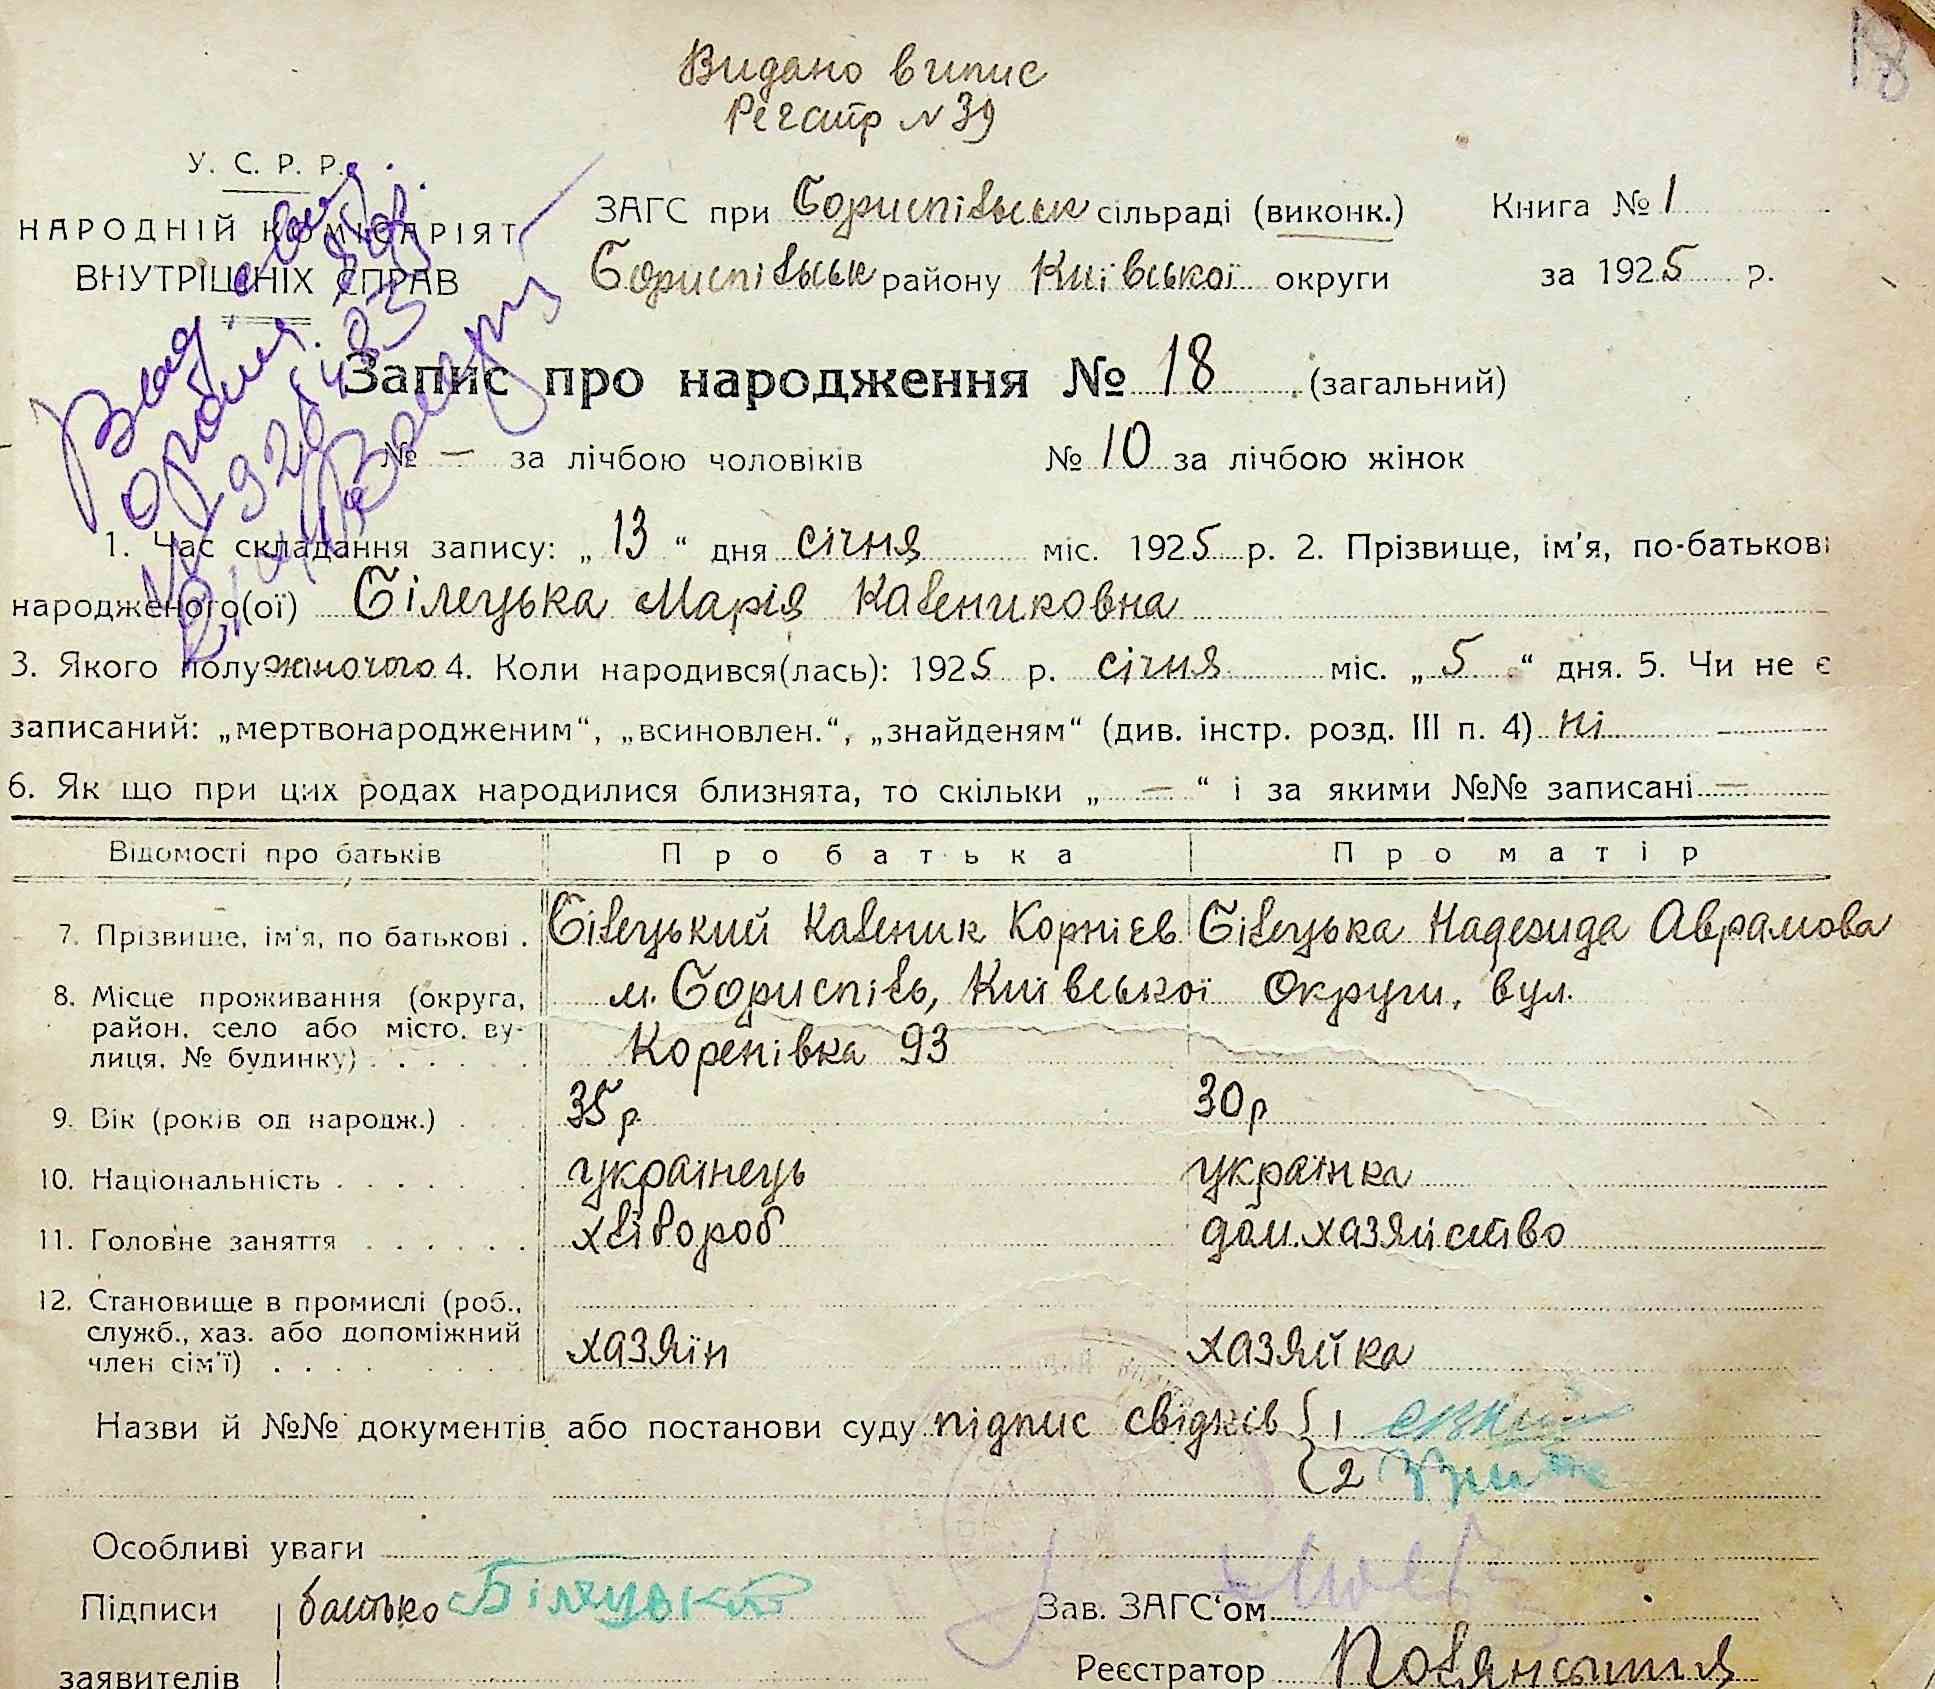 Видано випис
Регстр N 39
18
У. С. Р. Р.
НАРОДНІЙ КОМІСАРІЯТ
ВНУТРІШНІХ СПРАВ
ЗАГС при Бориспільськ сільраді (виконк.)
Книга № 1
Бориспільськ району Київської округи
за 1925 р.
Запис про народження № 18 (загальний)
№ — за лічбою чоловіків № 10 за лічбою жінок
1. Час складання запису: „ 13 “ дня січня міс. 1925 р. 2. Прізвище, ім'я, по-батькові
народженого(ої) Білецька Марія Калениковна
3. Якого полу жіночого 4. Коли народився(лась): 1925 р. січня міс. „ 5 “ дня. 5. Чи не є
записаний: „мертвонародженим“, „всиновлен.“, „знайденям“ (див. інстр. розд. III п. 4) ні
6. Як що при цих родах народилися близнята, то скільки „ — “ і за якими №№ записані —
Відомості про батьків Про батька Про матір
7. Прізвище, ім'я, по батькові . Білецький Каленик Корнієв Білецька Надежида Аврамова
8. Місце проживання (округа, м. Бориспіль, Київської Округи, вул.
район, село або місто, ву-
лиця, № будинку) . . . . . Коренівка 93
9. Вік (років од народж.) . 35 р 30 р
10. Національність . . . . . українець українка
11. Головне заняття . . . . . . хлібороб дом. хазяйство
12. Становище в промислі (роб.,
служб., хаз. або допоміжний
член сім'ї) . . . . хазяїн хазяйка
Назви й №№ документів або постанови суду підпис свідків { 1
2
Особливі уваги
Підписи батько Білецький
Зав. ЗАГС'ом
заявителів
Реєстратор